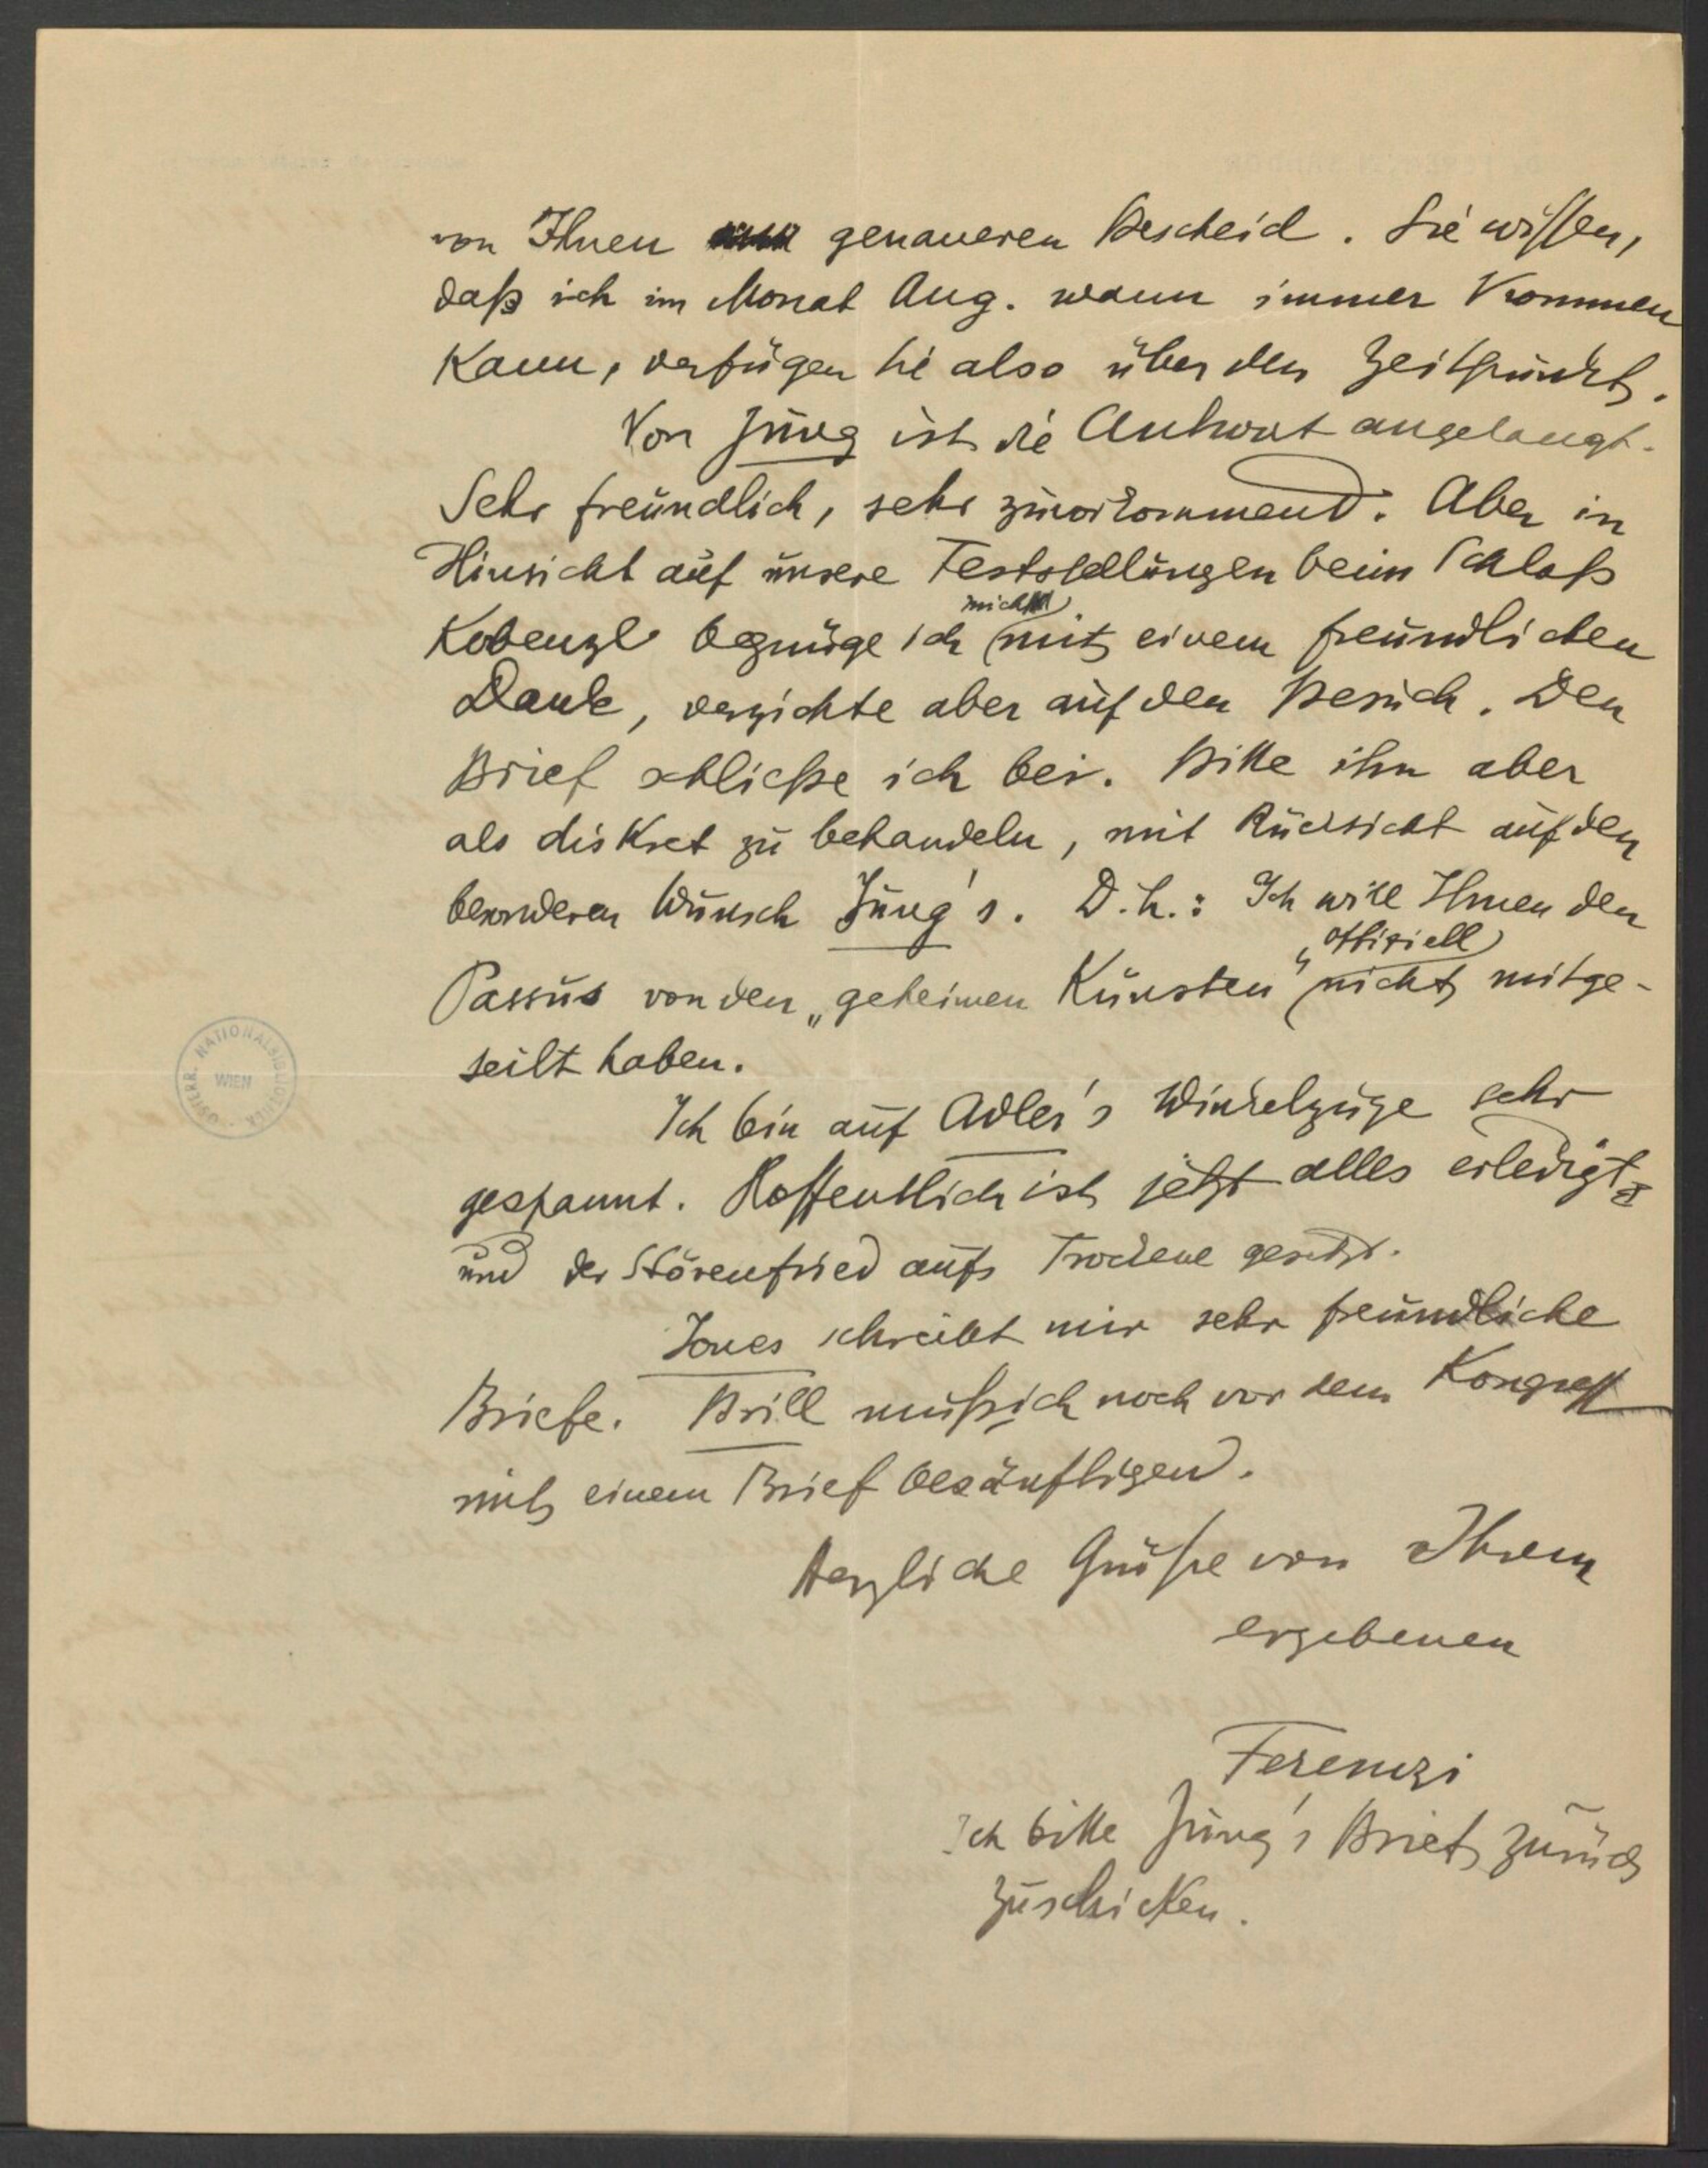 von Ihnen genaueren Bescheid. Sie wissen,
daß ich im Monat Aug. wann immer kommen
kann, verfügen sie also über den Zeitpunkt.
Von Jung ist die Antwort angelangt.
Sehr freundlich, sehr zuvorkommend. Aber in
Hinsicht auf unsere Feststellungen beim Schloß
Kobenzl begnüge ich mich mit einem freundlichen
Dank, verzichte aber auf den Besuch. Den
Brief schließe ich bei. Bitte ihn aber
als diskret zu behandeln, mit Rücksicht auf den
besonderen Wunsch Jung's. D.h.: Ich will Ihnen den
Passus von den „geheimen Künsten" „offiziell" nicht mitge-
teilt haben.
Ich bin auf Adler's Winkelzüge sehr
gespannt. Hoffentlich ist jetzt alles erledigt
und der Störenfried aufs Trockene gesetzt.
Jones schreibt mir sehr freundliche
Briefe. Brill muß ich noch vor dem Kongreß
mit einem Brief besänftigen.
Herzliche Grüße von Ihrem
ergebenen
Ferenczi
Ich bitte Jung's Brief zurück
zuschicken.
ÖSTERR. NATIONALBIBLIOTHEK
WIEN